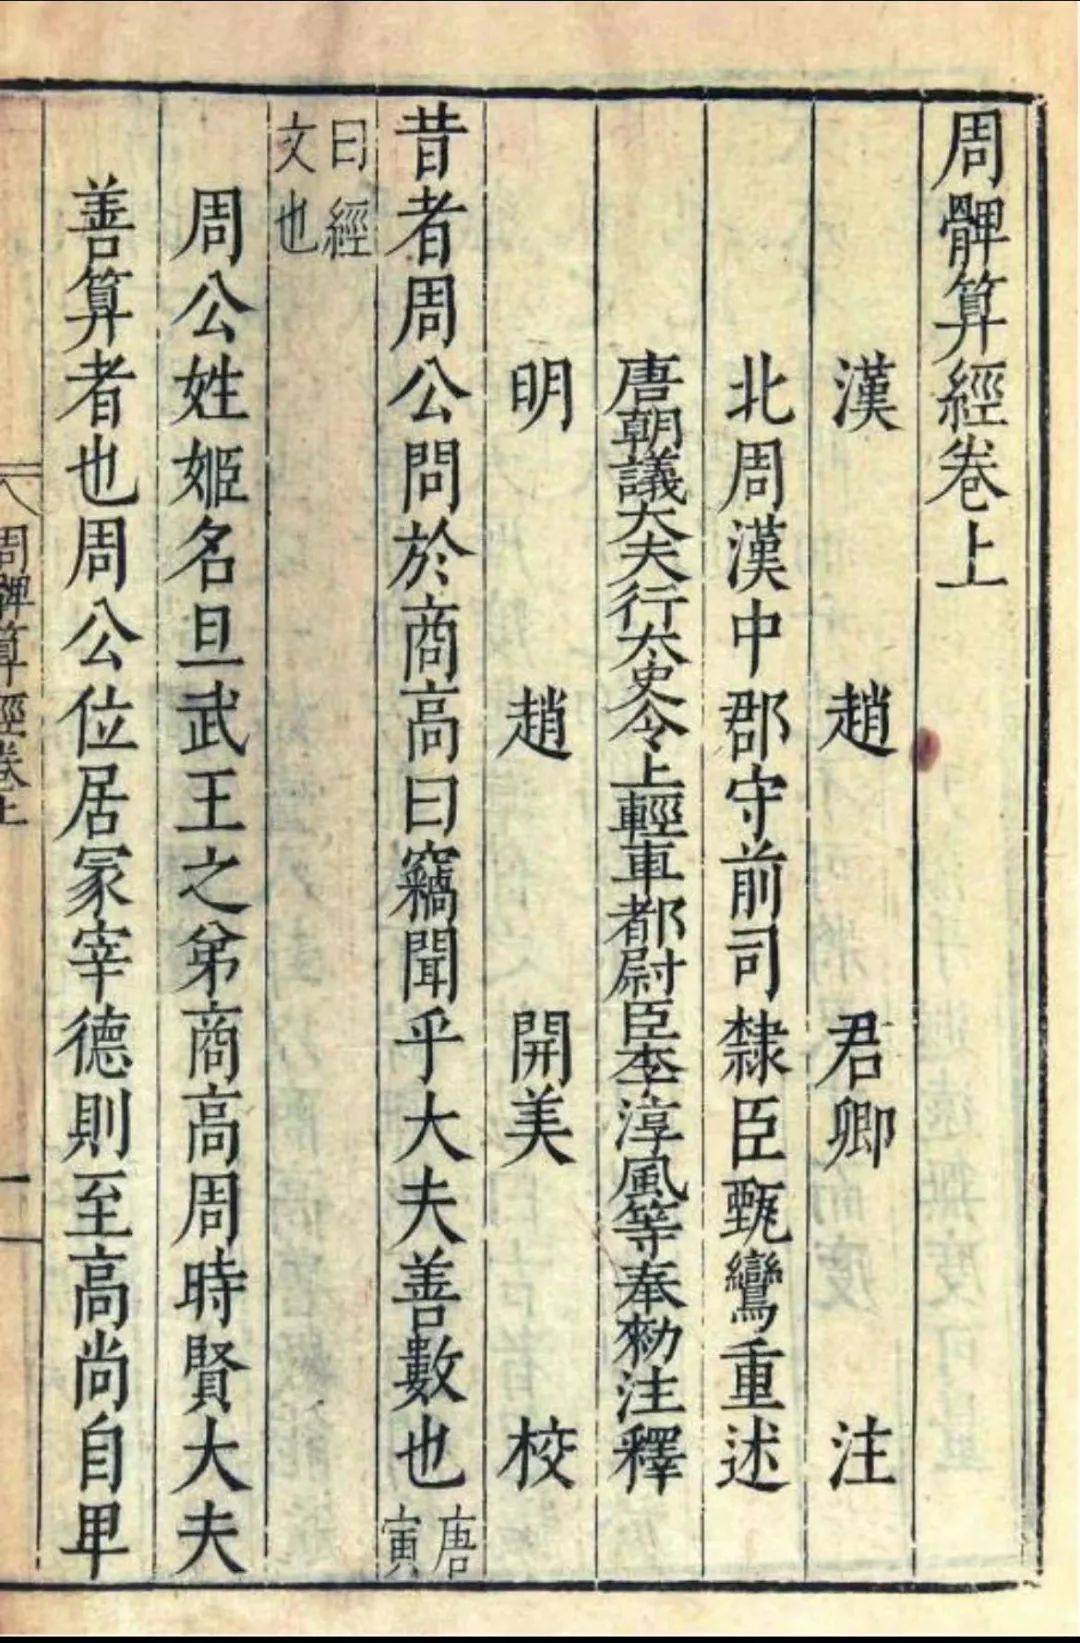 周髀算經卷上
漢 趙 君卿 注
北周漢中郡守前司隸臣甄鸞重述
唐朝議大夫行太史令上輕車都尉臣李淳風等奉勑注釋
明 趙 開美 校
昔者周公問於商高曰竊聞乎大夫善數也 唐寅
曰經文也
周公姓姬名旦武王之弟商高周時賢大夫
善算者也周公位居冢宰德則至高尚自卑
周髀算經卷上
一